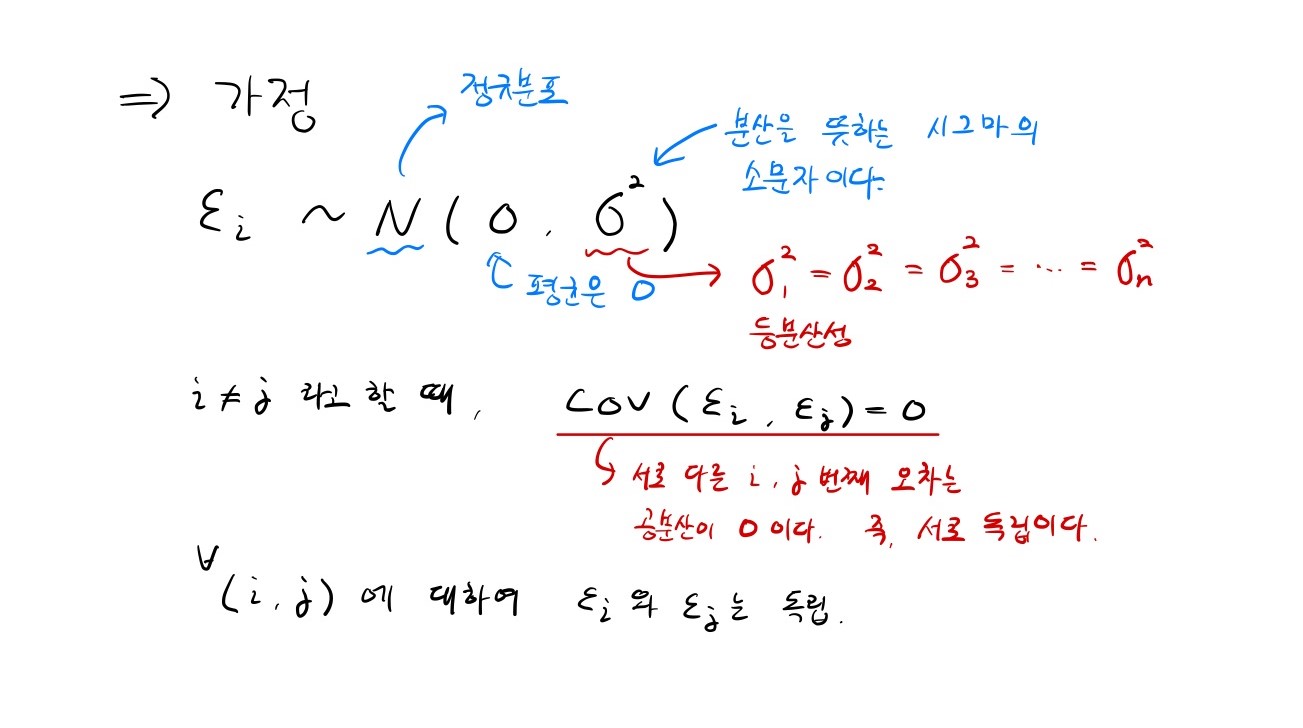 ⇒ 가정
정규분포
분산을 뜻하는 시그마의
소문자이다.
εᵢ ~ N ( 0 , σ² )
평균은 0
σ₁² = σ₂² = σ₃² = ⋯ = σₙ²
등분산성
i ≠ j 라고 할 때, COV ( εᵢ , εⱼ ) = 0
서로 다른 i , j 번째 오차는
공분산이 0 이다. 즉, 서로 독립이다.
∀(i, j) 에 대하여 εᵢ 와 εⱼ는 독립.